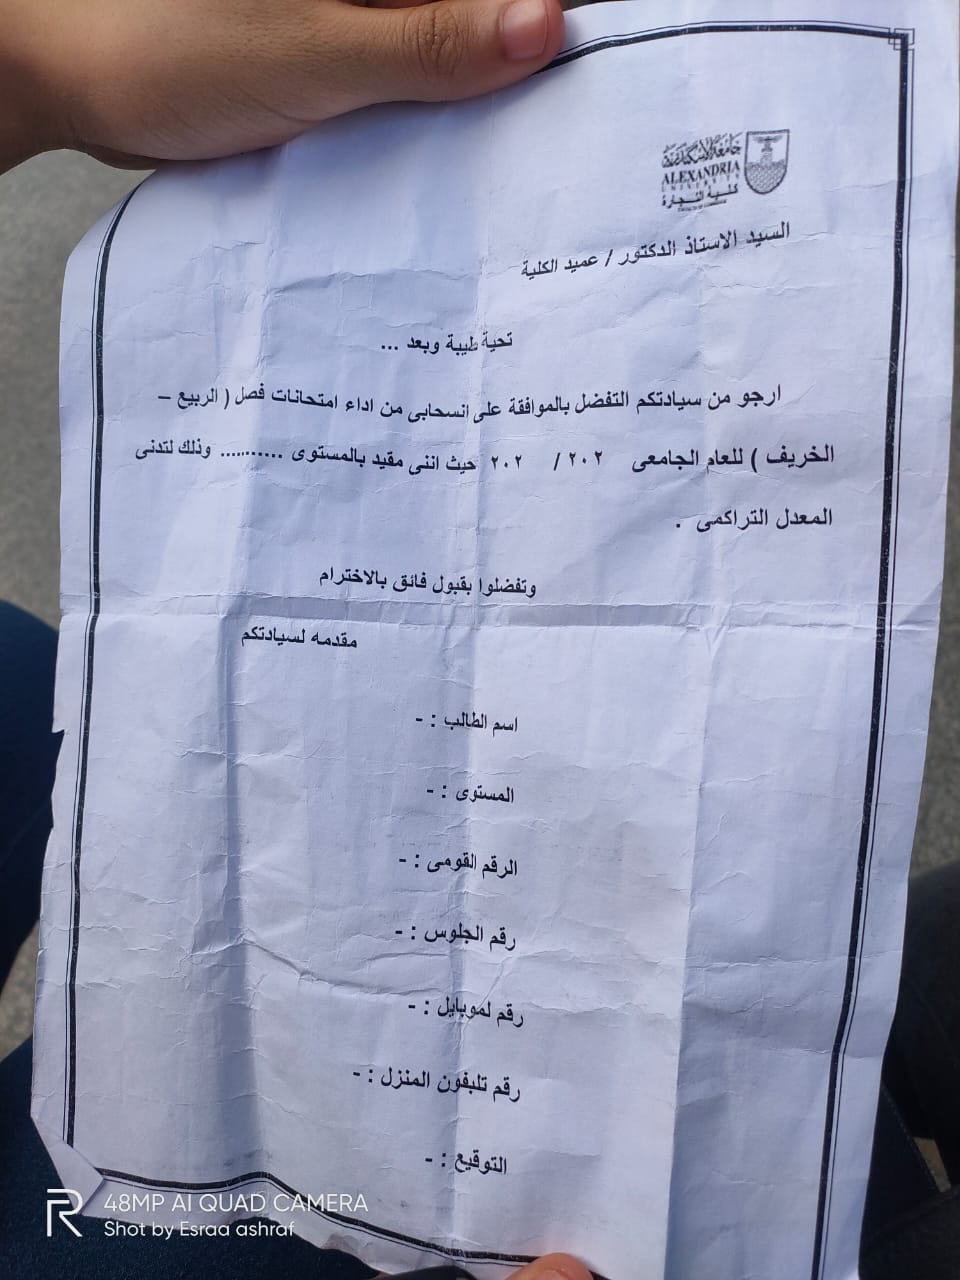 جامعة الإسكندرية
ALEXANDRIA
UNIVERSITY
كلية التجارة
السيد الاستاذ الدكتور / عميد الكلية
تحية طيبة وبعد ...
ارجو من سيادتكم التفضل بالموافقة على انسحابى من اداء امتحانات فصل ( الربيع –
الخريف ) للعام الجامعى ٢٠٢ / ٢٠٢ حيث اننى مقيد بالمستوى ........... وذلك لتدنى
المعدل التراكمى .
وتفضلوا بقبول فائق بالاخترام
مقدمه لسيادتكم
اسم الطالب : -
المستوى : -
الرقم القومى : -
رقم الجلوس : -
رقم لموبايل : -
رقم تليفون المنزل : -
التوقيع : -
R 48MP AI QUAD CAMERA
Shot by Esraa ashraf